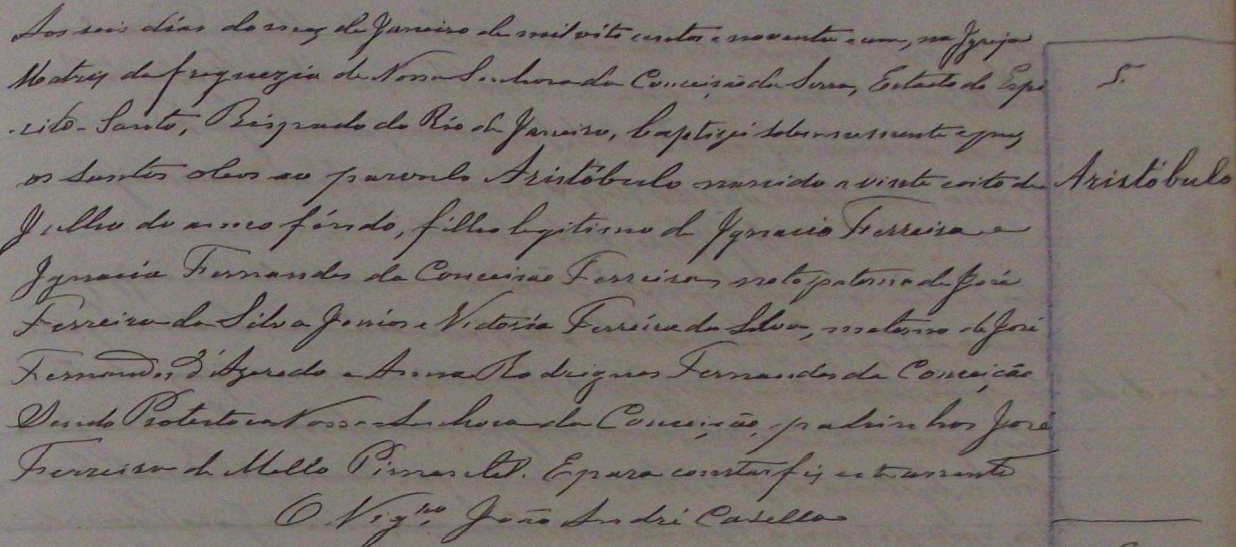 Aos seis dias do mez de Janeiro de mil oito centos e noventa e um, na Igreja
Matriz da freguezia de Nossa Senhora da Conceição da Serra, Estado do Espi
5.
-rito-Santo, Bispado do Rio de Janeiro, baptizei solemnemente e puz
os santos oleos ao parvulo Aristóbulo nascido a vinte e oito de
Aristóbulo
Julho do anno findo, filho legitimo de Ignacio Ferreira e
Ignacia Fernandes da Conceisão Ferreira, neto paterno de José
Ferreira da Silva Junior e Victoria Ferreira da Silva, materno de José
Fernandes d'Azeredo e Anna Rodrigues Fernandes da Conceição
Sendo Protectora Nossa Senhora da Conceição, padrinhos José
Ferreira de Mello Pimentel. E para constar fiz este assento
O Vigro. João André Casella